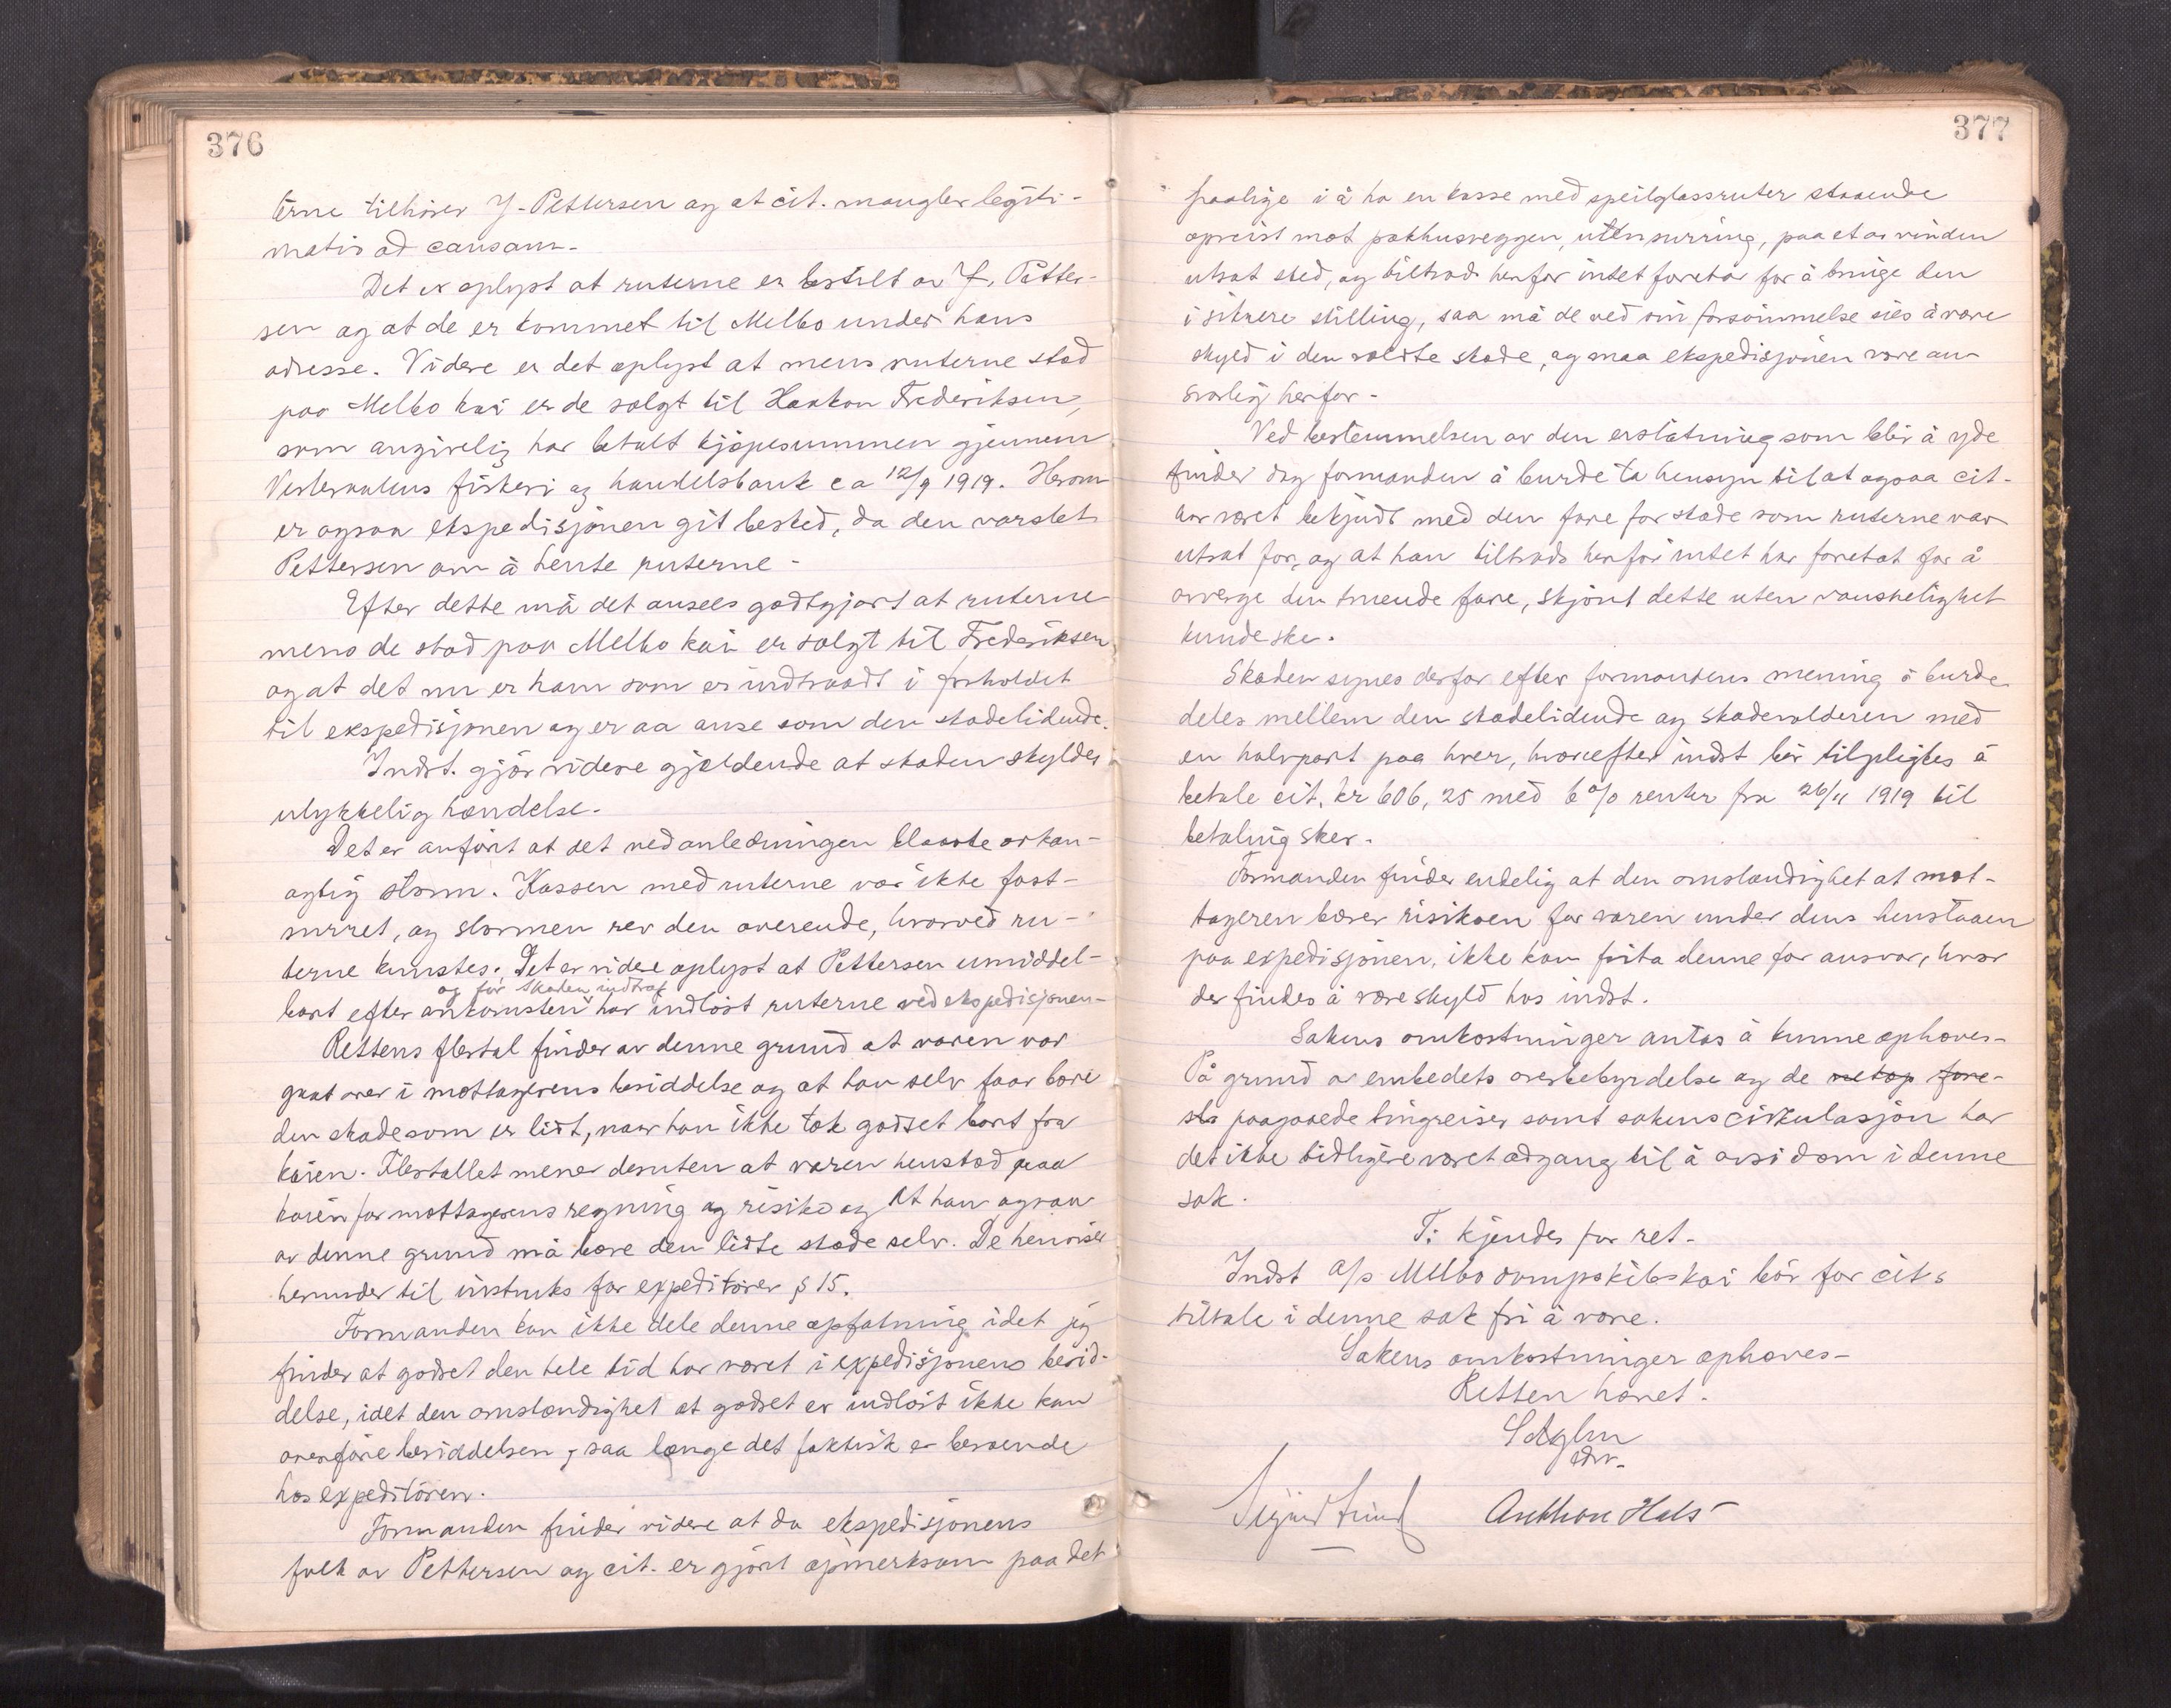 376
terne tilhører J. Pettersen og at cit. mangler legiti-
matio ad causam.
Det er oplyst at ruterne er bestilt av J. Petter-
sen og at de er kommet til Melbo under hans
adresse. Videre er det oplyst at mens ruterne stod
paa Melbo kai er de solgt til Haakon Frederiksen,
som angivelig har betalt kjøpesummen gjennem
Vesteraalens fiskeri og handelsbank ca 12/9 1919. Herom
er ogsaa ekspedisjonen git besked, da den varslet
Pettersen om å hente ruterne -
Efter dette må det ansees godtgjort at ruterne
mens de stod paa Melbo kai er solgt til Frederiksen
og at det nu er ham som er indtraadt i forholdet
til ekspedisjonen og er aa anse som den skadelidende.
Indst. gjør videre gjældende at skaden skyldes
ulykkelig hændelse.
Det er anført at det ved anledningen blaaste orkan-
agtig storm. Kassen med ruterne var ikke fast-
surret, og stormen rev den overende, hvorved ru-
terne knustes. Det er videre oplyst at Pettersen umiddel-
og før skaden indtraf
bart efter ankomsten har indløst ruterne ved ekspedisjonen-
Rettens flertal finder av denne grund at varen var
gaat over i mottagerens besiddelse og at han selv faar bære
den skade som er lidt, naar han ikke tok godset bort fra
kaien. Flertallet mener desuten at varen henstod paa
kaien for mottagerens regning og risiko og at han ogsaa
av denne grund må bære den lidte skade selv. De henviser
herunder til instruks for expeditører § 15.
Formanden kan ikke dele denne opfatning idet jeg
finder at godset den hele tid har været i expedisjonens besid-
delse, idet den omstændighet at godset er indløst ikke kan
overføre besiddelsen, saa længe det faktisk er beroende
hos expeditøren.
Formanden finder videre at da ekspedisjonens
folk av Pettersen og cit. er gjort opmerksom paa det
377
faalige i å ha en kasse med speilglassruter staaende
opreist mot pakhusveggen, uten surring, paa et av vinden
utsat sted, og tiltrods herfor intet foretar for å bringe den
i sikrere stilling, saa må de ved sin forsømmelse sies å være
skyld i den voldte skade, og maa ekspedisjonen være an-
svarlig herfor -
Ved bestemmelsen av den erstatning som blir å yde
finder dog formanden å burde ta hensyn til at ogsaa cit.
har været bekjendt med den fare for skade som ruterne var
utsat for, og at han tiltrods herfor intet har foretat for å
avverge den truende fare, skjønt dette uten vanskelighet
kunde ske.
Skaden synes derfor efter formandens mening å burde
deles mellem den skadelidende og skadevolderen med
en halvpart paa hver, hvorefter indst bør tilpligtes å
betale cit. kr 606,25 med 6 % renter fra 26/11 1919 til
betaling sker.
Formanden finder endelig at den omstændighet at mot-
tageren bærer risikoen for varen under dens henstaaen
paa expedisjonen, ikke kan frita denne for ansvar, hvor
der findes å være skyld hos indst.
Sakens omkostninger antas å kunne ophæves -
På grund av embedets overbebyrdelse og de netop fore-
sta paagaaede tingreiser samt sakens cirkulasjon har
det ikke tidligere været adgang til å avsi dom i denne
sak.
T: kjendes for ret -
Indst a/s Melbo dampskibskai bør for cit.s
tiltale i denne sak fri å være.
Sakens omkostninger ophæves -
Retten hævet.
Anthon Hals